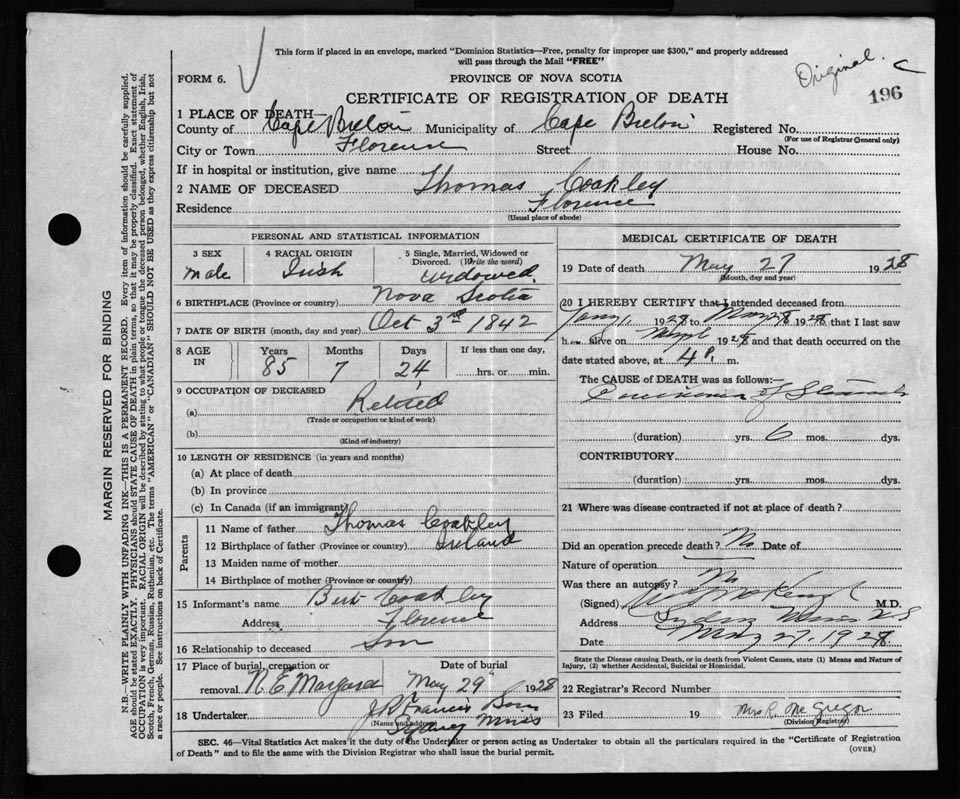 This form if placed in an envelope, marked "Dominion Statistics—Free, penalty for improper use $300," and properly addressed
will pass through the Mail "FREE"
Original. C
FORM 6.
PROVINCE OF NOVA SCOTIA
196
CERTIFICATE OF REGISTRATION OF DEATH
1 PLACE OF DEATH—
County of Cape Breton Municipality of Cape Breton Registered No.
(For use of Registrar General only)
City or Town Florence Street House No.
If in hospital or institution, give name
2 NAME OF DECEASED Thomas Coakley
Residence Florence
(Usual place of abode)
PERSONAL AND STATISTICAL INFORMATION
3 SEX
male
4 RACIAL ORIGIN
Irish
5 Single, Married, Widowed or
Divorced. (Write the word)
widowed
6 BIRTHPLACE (Province or country) Nova Scotia
7 DATE OF BIRTH (month, day and year) Oct 3rd 1842
8 AGE IN
Years
85
Months
7
Days
24
If less than one day,
hrs. or min.
9 OCCUPATION OF DECEASED
(a) Retired
(Trade or occupation or kind of work)
(b)
(Kind of industry)
10 LENGTH OF RESIDENCE (in years and months)
(a) At place of death
(b) In province
(c) In Canada (if an immigrant)
Parents
11 Name of father Thomas Coakley
12 Birthplace of father (Province or country) Ireland
13 Maiden name of mother
14 Birthplace of mother (Province or country)
15 Informant's name Bert Coakley
Address Florence
16 Relationship to deceased Son
17 Place of burial, cremation or
removal N. E. Margaree
Date of burial
May 29 1928
18 Undertaker J. R. Francis Son
(Name and address)
Sydney Mines
MEDICAL CERTIFICATE OF DEATH
19 Date of death May 27 1928
(Month, day and year)
20 I HEREBY CERTIFY that I attended deceased from
1928 to 1928 that I last saw
h alive on 1928 and that death occurred on the
date stated above, at 4 P. m.
The CAUSE OF DEATH was as follows:
of Stomach
(duration) yrs. 6 mos. dys.
CONTRIBUTORY
(duration) yrs. mos. dys.
21 Where was disease contracted if not at place of death?
Did an operation precede death? No Date of
Nature of operation
Was there an autopsy? No
(Signed) M.D.
Address Sydney Mines
Date May 27. 1928
State the Disease causing Death, or in death from Violent Causes, state (1) Means and Nature of
Injury, (2) whether Accidental, Suicidal or Homicidal.
22 Registrar's Record Number
23 Filed 19 Mrs R. McGregor
(Division Registrar)
SEC. 46—Vital Statistics Act makes it the duty of the Undertaker or person acting as Undertaker to obtain all the particulars required in the "Certificate of Registration
of Death" and to file the same with the Division Registrar who shall issue the burial permit.
(OVER)
MARGIN RESERVED FOR BINDING
N.B.—WRITE PLAINLY WITH UNFADING INK—THIS IS A PERMANENT RECORD. Every item of information should be carefully supplied.
AGE should be stated EXACTLY. PHYSICIANS should STATE CAUSE OF DEATH in plain terms, so that it may be properly classified. Exact statement of
OCCUPATION is very important. RACIAL ORIGIN will be described by stating to what people or tongue the deceased person belonged, whether English, Irish,
Scotch, French, German, Russian, Ruthenian, etc. The terms "AMERICAN" or "CANADIAN" SHOULD NOT BE USED as they express citizenship but not
a race or people. See instructions on back of Certificate.